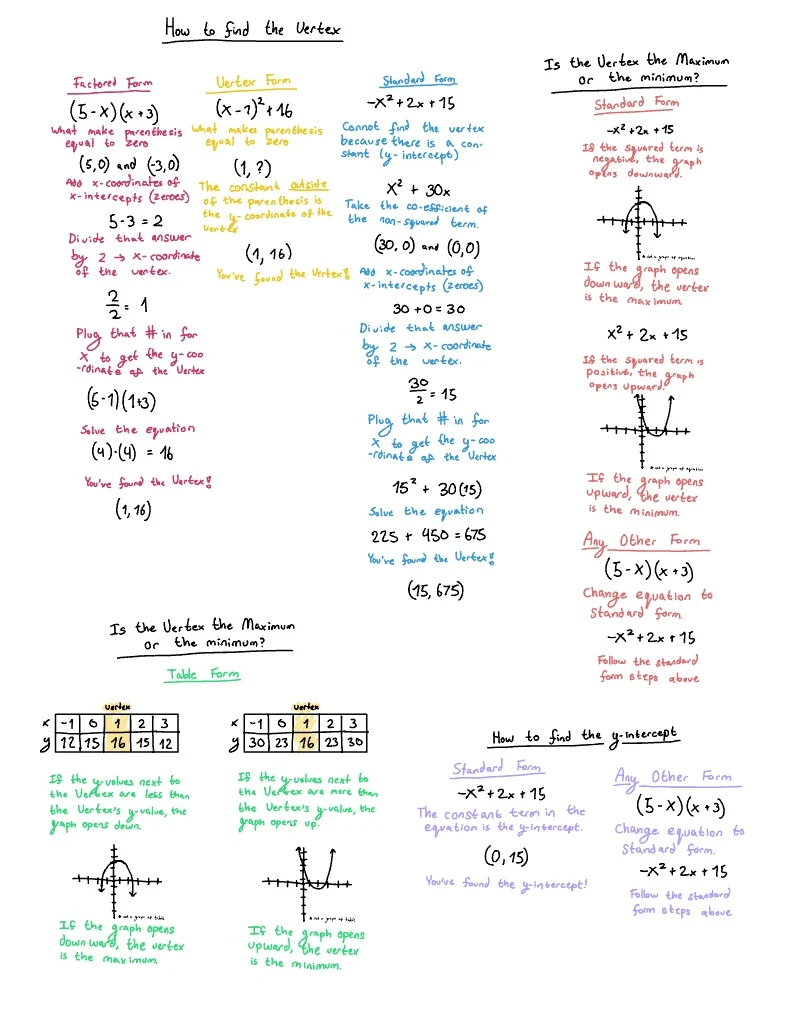 How to find the Vertex
Factored Form
(5-x)(x+3)
What make parenthesis
equal to zero
(5,0) and (-3,0)
Add x-coordinates of
x-intercepts (zeroes)
5-3=2
Divide that answer
by 2 → x-coordinate
of the vertex.
2/2 = 1
Plug that # in for
x to get the y-coo
-rdinate of the Vertex
(5-1)(1+3)
Solve the equation
(4)·(4) = 16
You've found the Vertex!
(1,16)
Vertex Form
(x-1)²+16
What makes parenthesis
equal to zero
(1,?)
The constant outside
of the parenthesis is
the y-coordinate of the
vertex
(1,16)
You've found the Vertex!
Standard Form
-x²+2x+15
Cannot find the vertex
because there is a con-
stant (y-intercept)
x² + 30x
Take the co-efficient of
the non-squared term.
(30,0) and (0,0)
Add x-coordinates of
x-intercepts (zeroes)
30+0=30
Divide that answer
by 2 → x-coordinate
of the vertex.
30/2 = 15
Plug that # in for
x to get the y-coo
-rdinate of the Vertex
15² + 30(15)
Solve the equation
225 + 450 = 675
You've found the Vertex!
(15,675)
Is the Vertex the Maximum
or the minimum?
Standard Form
-x²+2x+15
If the squared term is
negative, the graph
opens downward.
*not a graph of equation
If the graph opens
downward, the vertex
is the maximum.
x² + 2x + 15
If the squared term is
positive, the graph
opens upward.
*not a graph of equation
If the graph opens
upward, the vertex
is the minimum.
Any Other Form
(5-x)(x+3)
Change equation to
Standard form.
-x²+2x+15
Follow the standard
form steps above
Is the Vertex the Maximum
or the minimum?
Table Form
Vertex
x -1 0 1 2 3
y 12 15 16 15 12
If the y-values next to
the Vertex are less than
the Vertex's y-value, the
graph opens down.
*not a graph of table
If the graph opens
downward, the vertex
is the maximum.
Vertex
x -1 0 1 2 3
y 30 23 16 23 30
If the y-values next to
the Vertex are more than
the Vertex's y-value, the
graph opens up.
*not a graph of table
If the graph opens
upward, the vertex
is the minimum.
How to find the y-intercept
Standard Form
-x²+2x+15
The constant term in the
equation is the y-intercept.
(0,15)
You've found the y-intercept!
Any Other Form
(5-x)(x+3)
Change equation to
Standard form.
-x²+2x+15
Follow the standard
form steps above